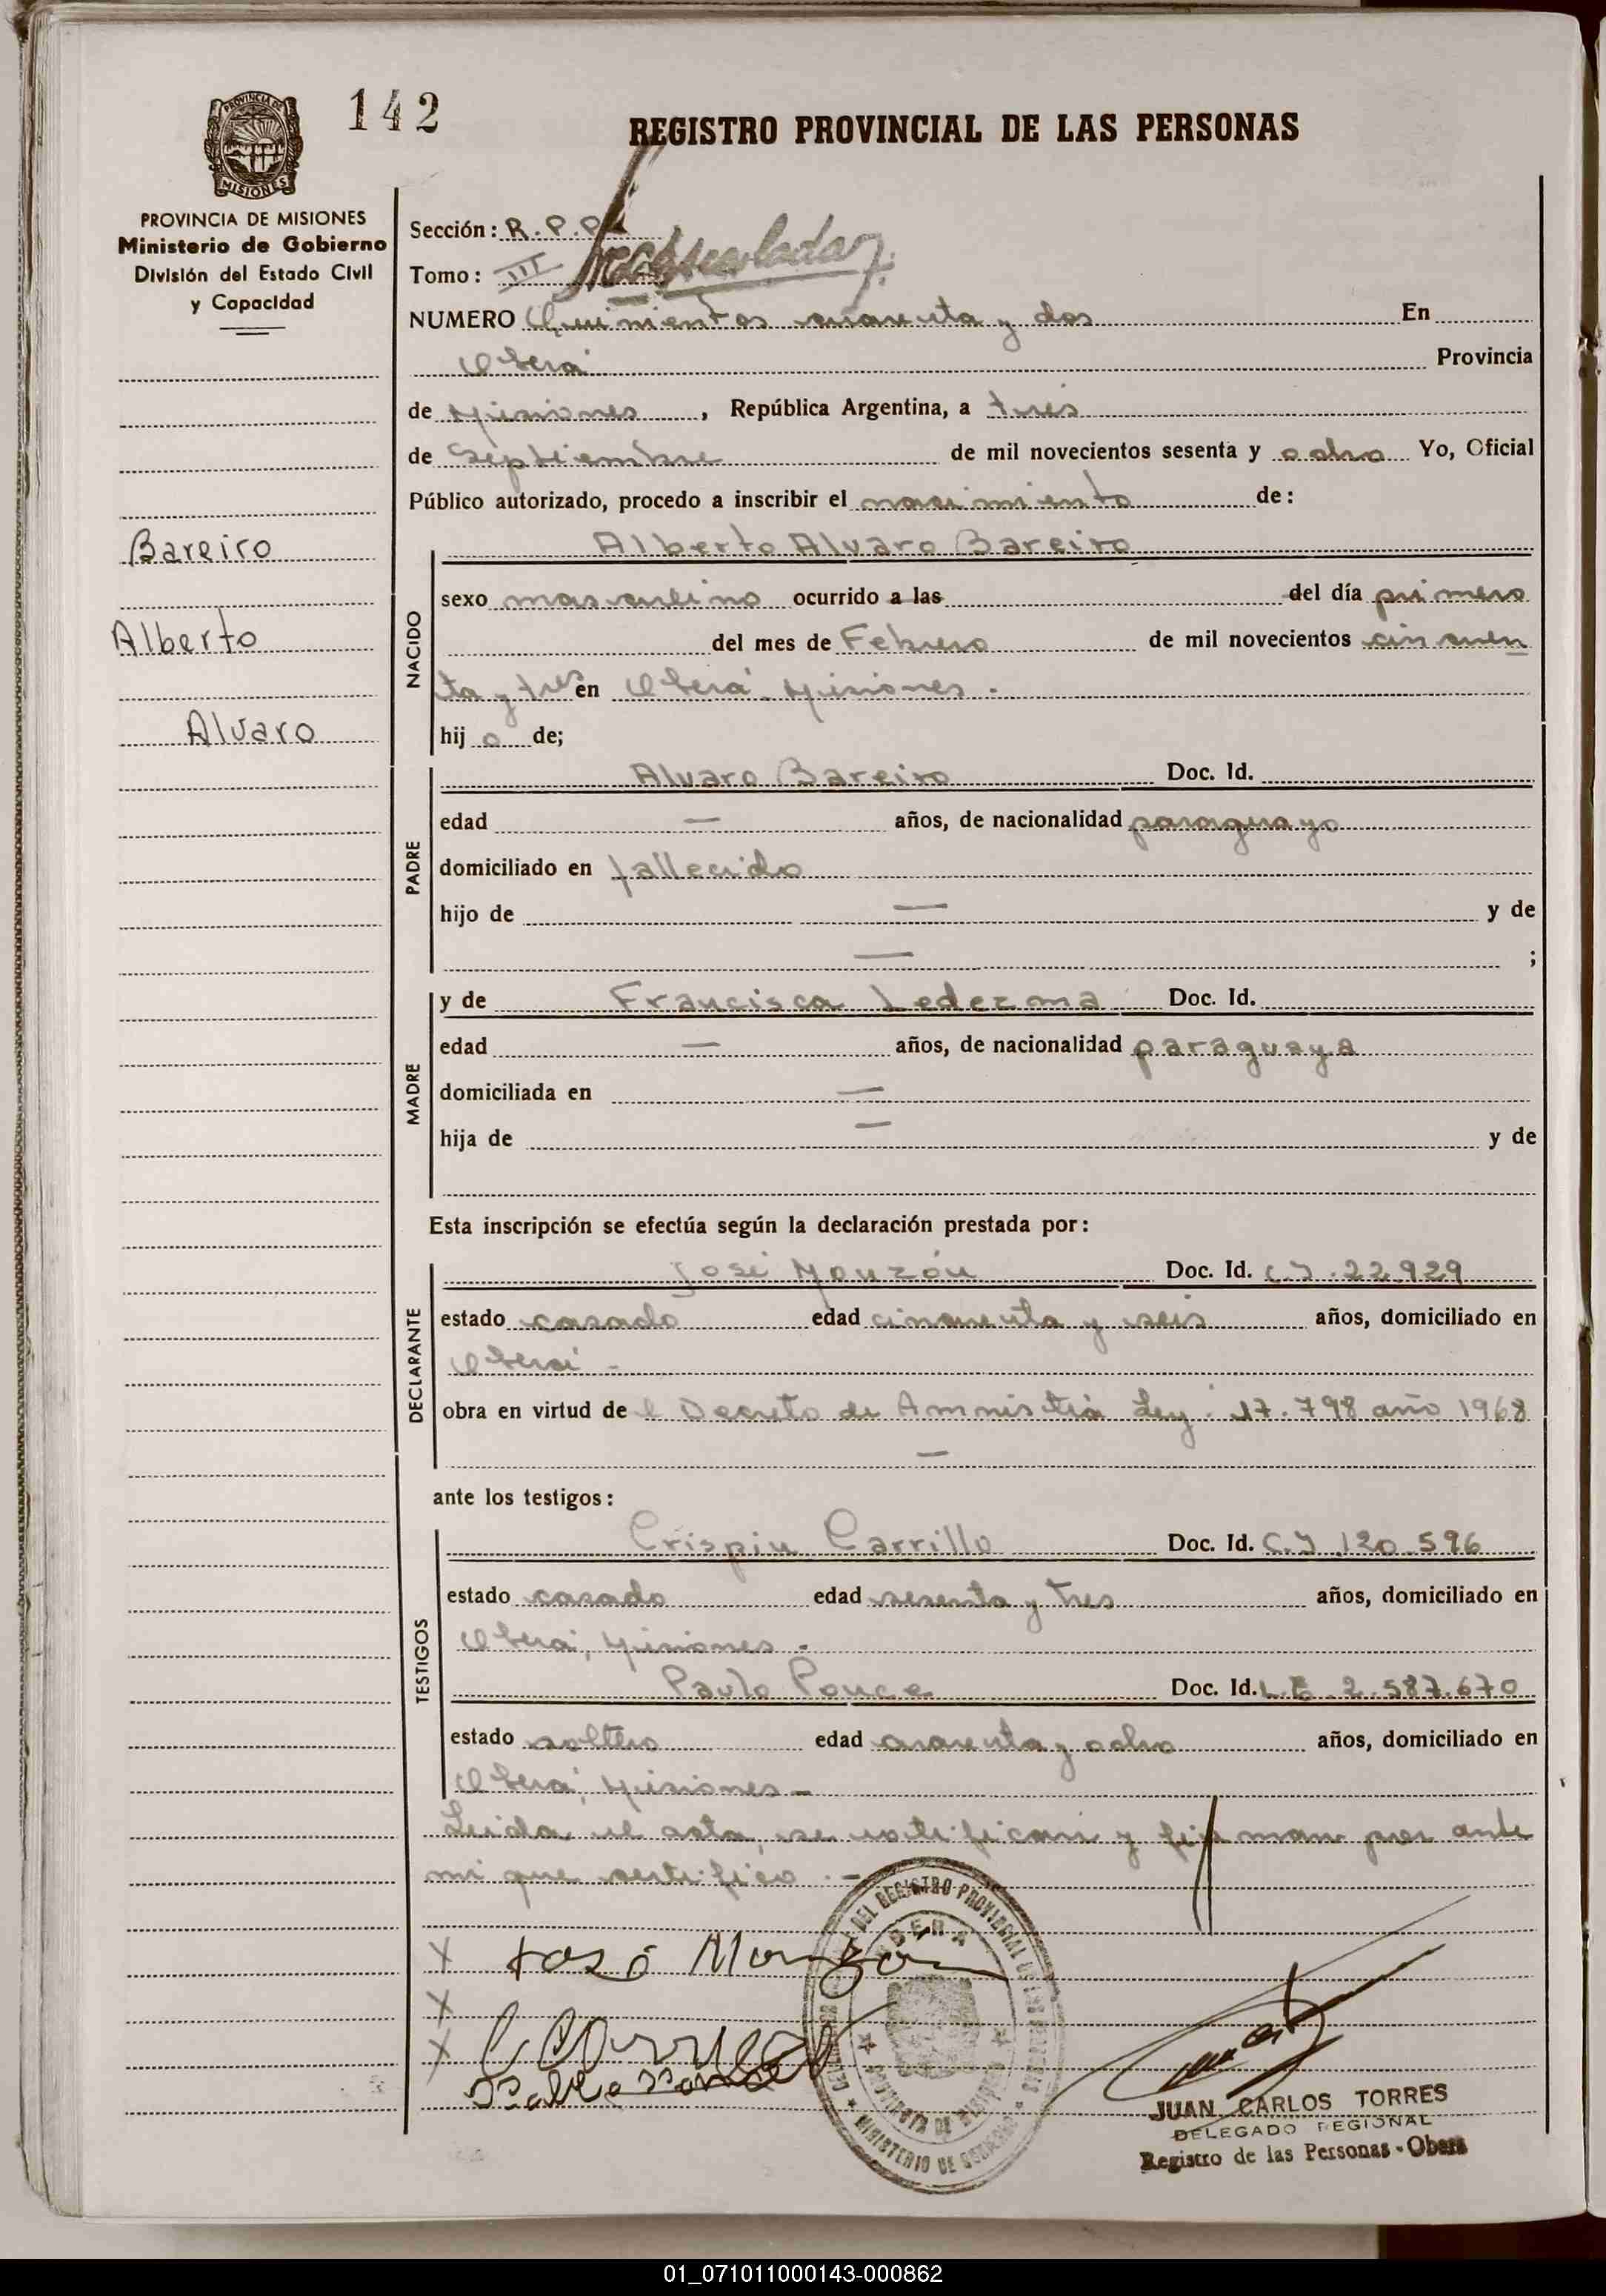 142
REGISTRO PROVINCIAL DE LAS PERSONAS
PROVINCIA DE MISIONES
Ministerio de Gobierno
División del Estado Civil
y Capacidad
Sección: R.P.P.
Tomo: III
NUMERO Quinientos cuarenta y dos En
Oberá Provincia
de Misiones, República Argentina, a tres
de Septiembre de mil novecientos sesenta y ocho Yo, Oficial
Público autorizado, procedo a inscribir el nacimiento de:
Bareiro
Alberto
Alvaro
NACIDO
Alberto Alvaro Bareiro
sexo masculino ocurrido a las del día primero
del mes de Febrero de mil novecientos cincuen
ta y tres en Oberá Misiones.
hijo de;
PADRE
Alvaro Bareiro Doc. Id.
edad — años, de nacionalidad paraguayo
domiciliado en fallecido
hijo de — y de
— ;
MADRE
y de Francisca Ledezma Doc. Id.
edad — años, de nacionalidad paraguaya
domiciliada en —
hija de — y de
Esta inscripción se efectúa según la declaración prestada por:
DECLARANTE
José Monzón Doc. Id. C.I. 22.929
estado casado edad cincuenta y seis años, domiciliado en
Oberá -
obra en virtud del Decreto de Amnistía Ley 17.798 año 1968
—
ante los testigos:
TESTIGOS
Crispin Carrillo Doc. Id. C.I 120.596
estado casado edad sesenta y tres años, domiciliado en
Oberá, Misiones.
Pavlo Ponce Doc. Id. L.E 2.587.670
estado soltero edad cuarenta y ocho años, domiciliado en
Oberá, Misiones -
Leida el acta, se ratifican y firman por ante
mi que certifico. -
X José Monzon
X
X
MINISTERIO DE GOBIERNO
JUAN CARLOS TORRES
DELEGADO REGIONAL
Registro de las Personas - Oberá
01_071011000143-000862